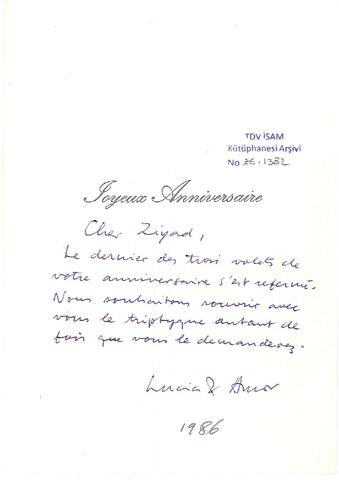 TDV İSAM
Kütüphanesi Arşivi
No ZE.1382
Joyeux Anniversaire
Cher Ziyad,
Le dernier des trois volets de
votre anniversaire s'est refermé.
Nous souhaitons rouvrir avec
vous le triptyque autant de
fois que vous le demanderez.
Lucia & Amor
1986